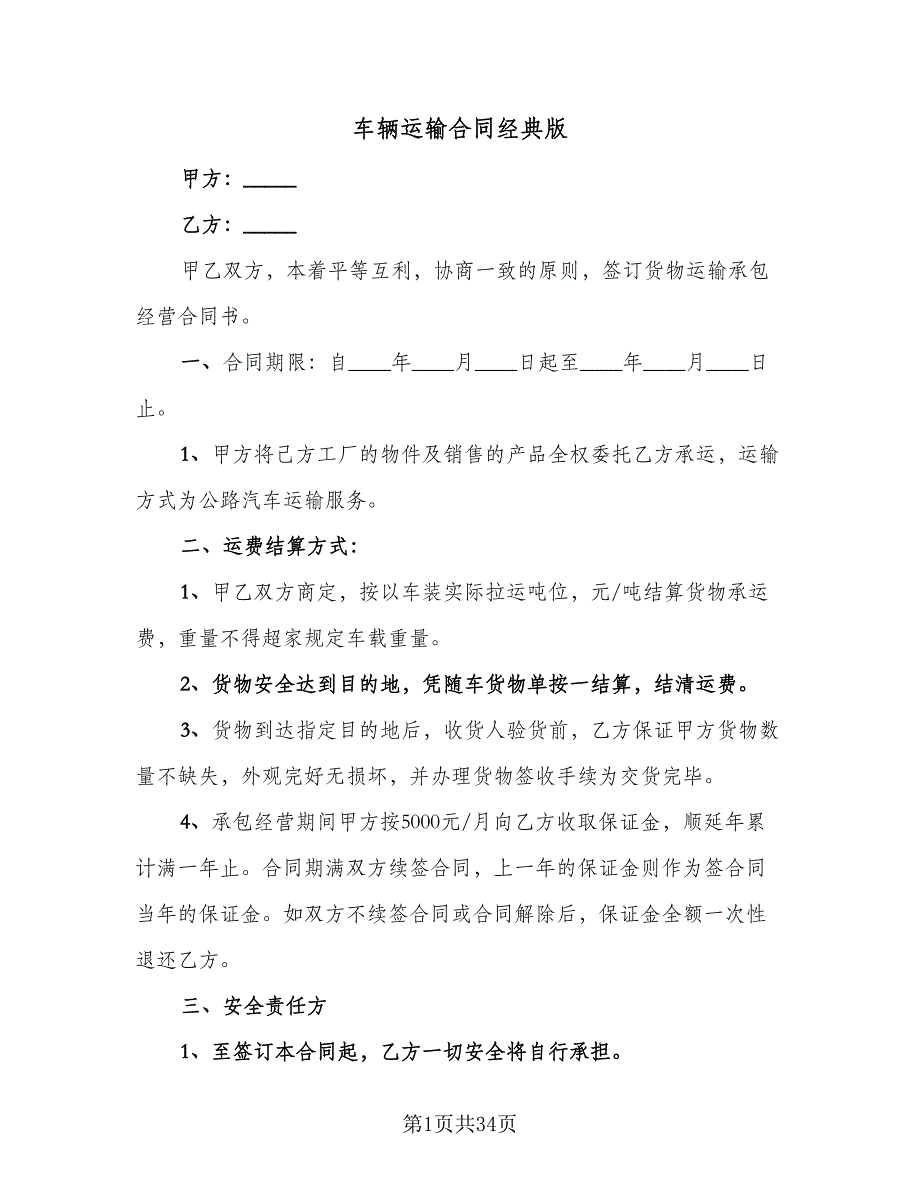 车辆运输合同经典版
甲方：_____
乙方：_____
甲乙双方，本着平等互利，协商一致的原则，签订货物运输承包
经营合同书。
一、合同期限：自____年____月____日起至____年____月____日
止。
1、甲方将己方工厂的物件及销售的产品全权委托乙方承运，运输
方式为公路汽车运输服务。
二、运费结算方式：
1、甲乙双方商定，按以车装实际拉运吨位，元/吨结算货物承运
费，重量不得超家规定车载重量。
2、货物安全达到目的地，凭随车货物单按一结算，结清运费。
3、货物到达指定目的地后，收货人验货前，乙方保证甲方货物数
量不缺失，外观完好无损坏，并办理货物签收手续为交货完毕。
4、承包经营期间甲方按5000元/月向乙方收取保证金，顺延年累
计满一年止。合同期满双方续签合同，上一年的保证金则作为签合同
当年的保证金。如双方不续签合同或合同解除后，保证金全额一次性
退还乙方。
三、安全责任方
1、至签订本合同起，乙方一切安全将自行承担。
第1页共34页